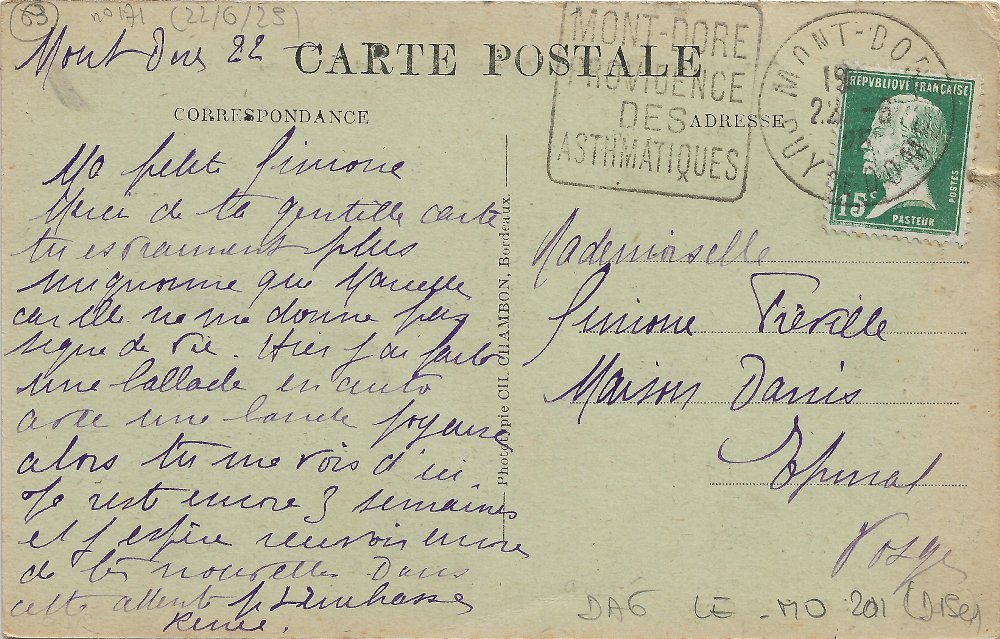 63 n° 171 (22/6/25)
Mont Dore 22
CARTE POSTALE
CORRESPONDANCE
ADRESSE
MONT-DORE
PROVIDENCE
DES
ASTHMATIQUES
MONT-DORE
PUY DE DOME
RÉPUBLIQUE FRANÇAISE
15c
POSTES
PASTEUR
Ma petite Simone
Merci de ta gentille carte
tu es vraiment plus
mignonne que Marcelle
car elle ne me donne pas
signe de vie. Hier j'ai fait
une ballade en auto
avec une bande joyeuse
alors tu me vois d'ici
Je reste encore 3 semaines
et j'espère recevoir encore
de tes nouvelles Dans
cette attente je t'embrasse
Renée.
Phototypie CH. CHAMBON, Bordeaux
Mademoiselle
Simone Fréville
Maison Danis
Epinal
Vosges
DAG LE-MO 201 (D13e9)